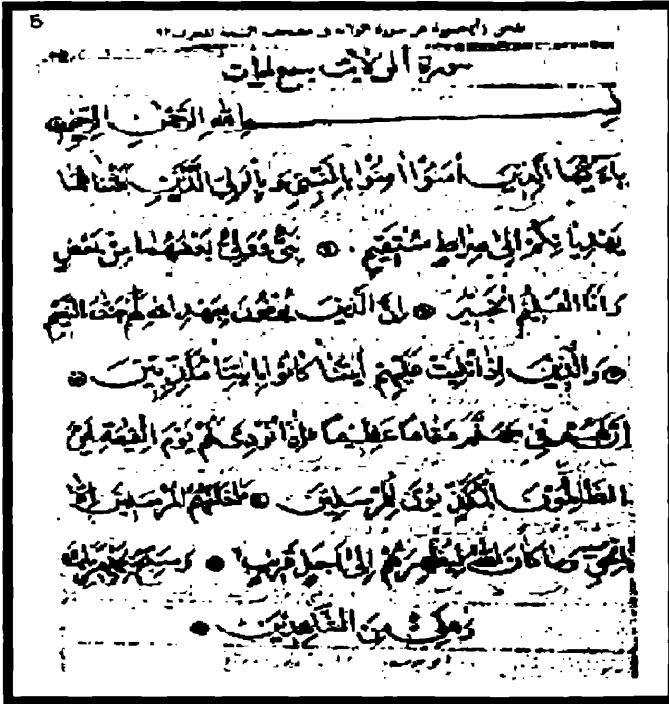 5
سورة الولاية سبع آيات
بسم الله الرحمن الرحيم
ياءيها الذين ءامنوا ءامنوا بالنبي وبالولي الذين بعثناهما
يهديانكم الى صراط مستقيم نبي وولي بعضهما من بعض
وانا العليم الخبير ان الذين يوفون بعهد الله لهم جنت النعيم
والذين اذا تليت عليهم ءايتنا كانوا بايتنا مكذبين
ان لهم في جهنم مقاما عظيما اذا نودي لهم يوم القيمة اين
الظالمون المكذبون للمرسلين ما خلفهم المرسلين الا
بالحق وما كان الله ليظهرهم الى اجل قريب وسبح بحمد ربك
وعلي من الشاهدين